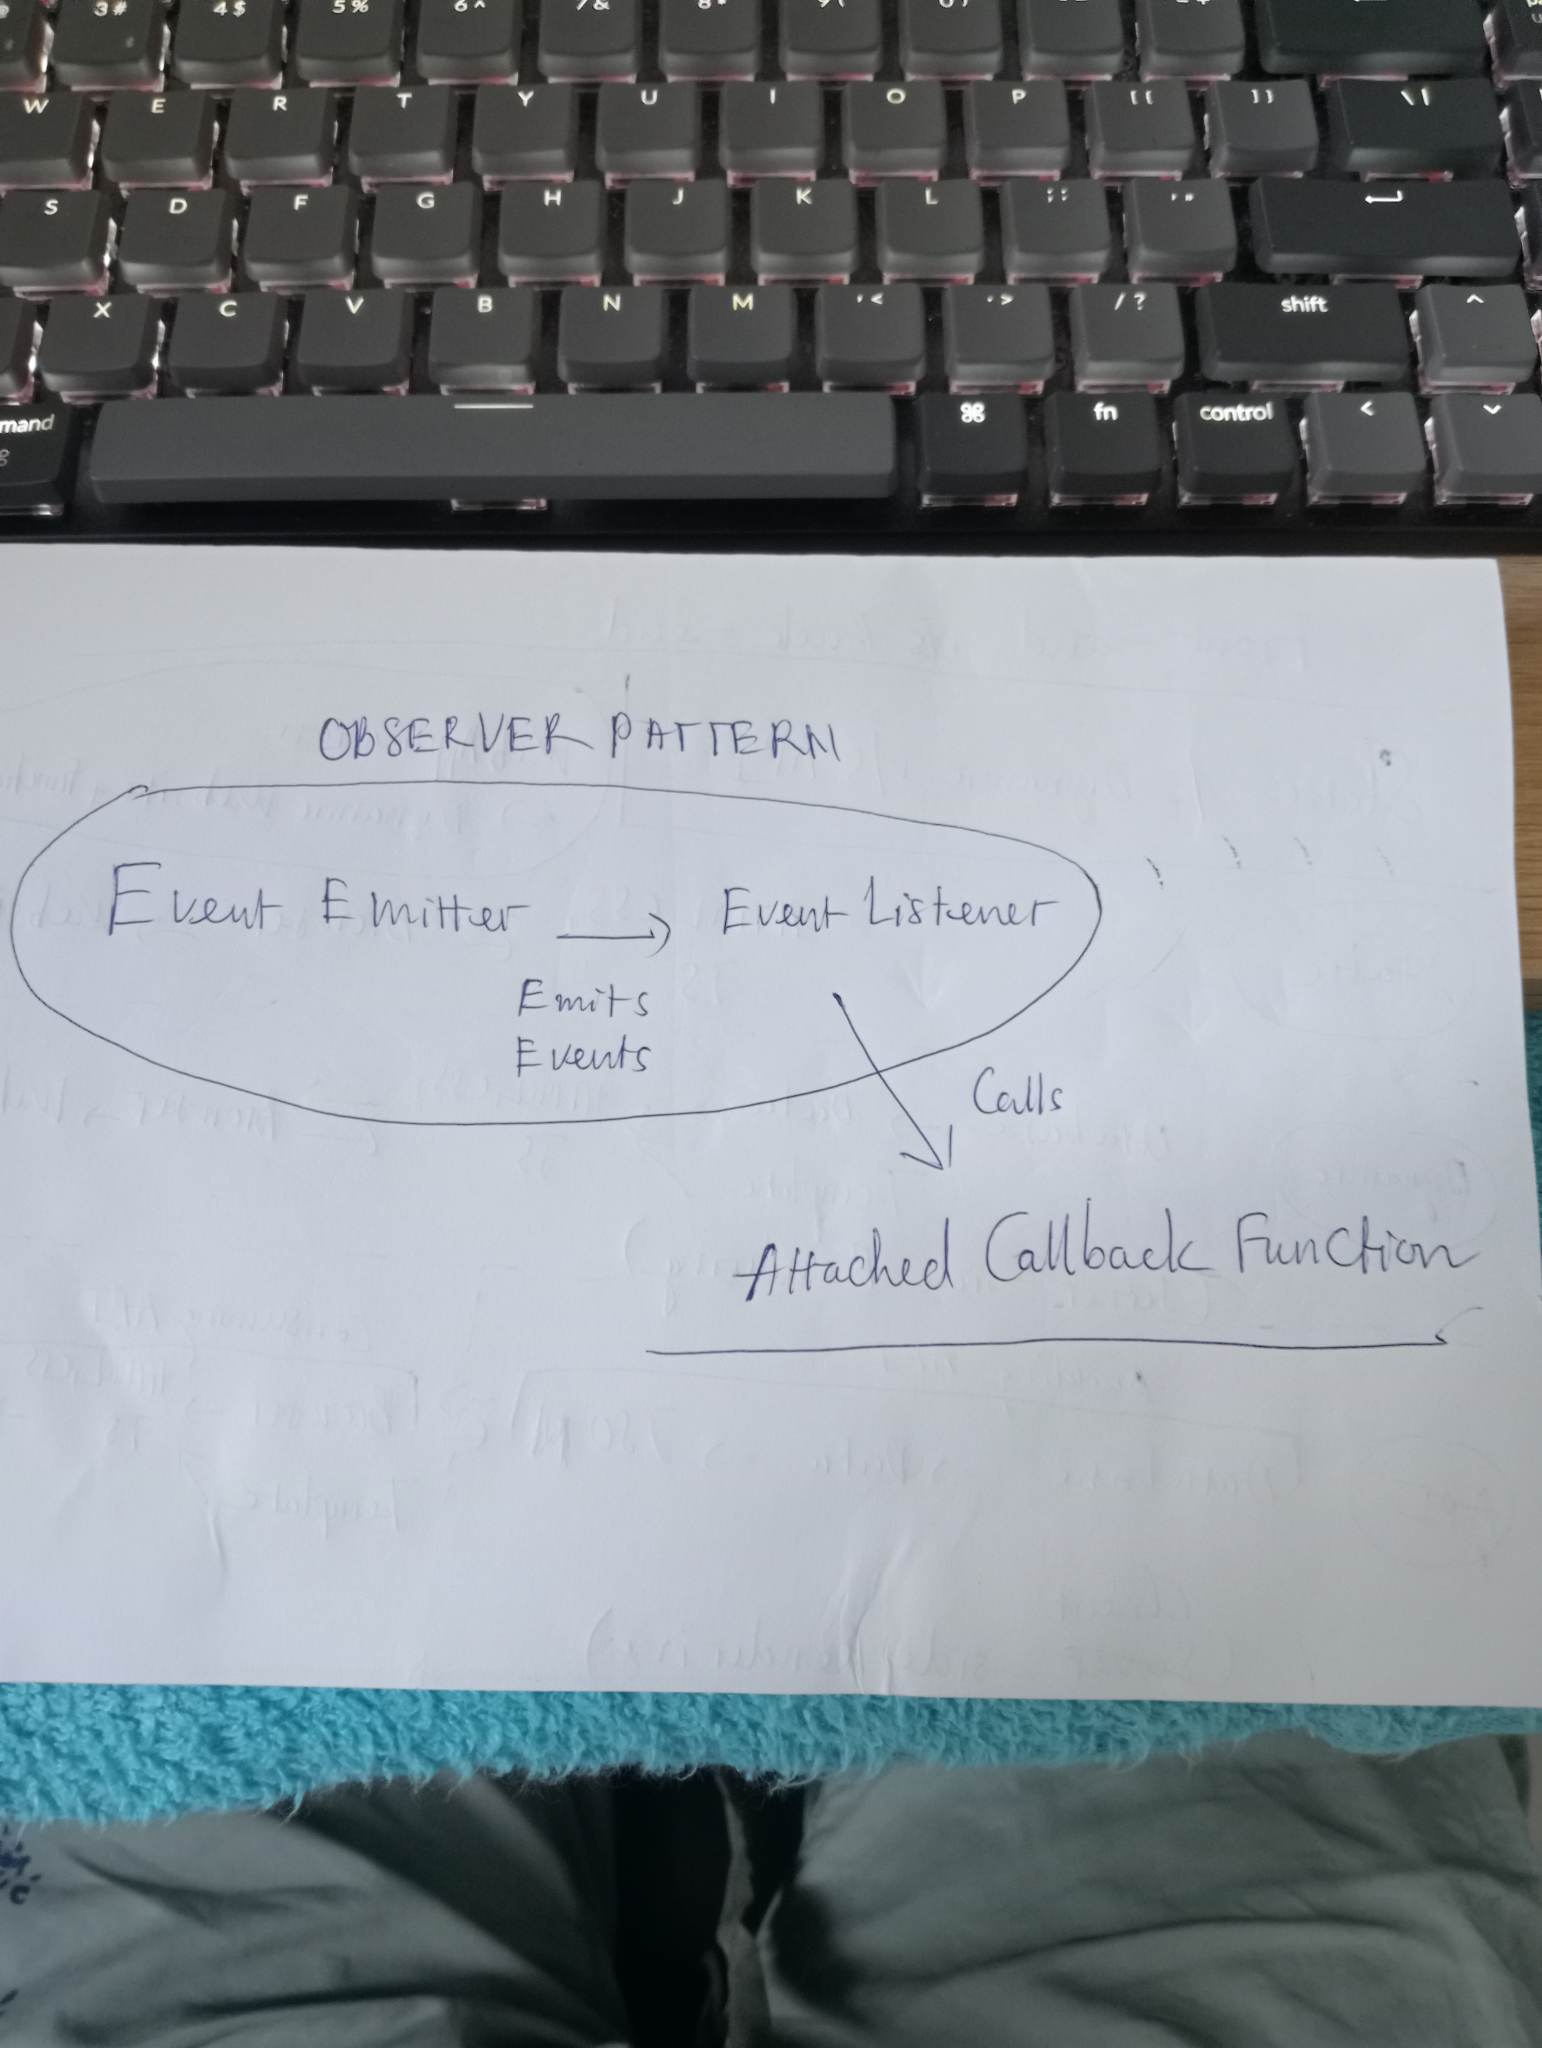 3 # 4 $ 5 %
W E R T Y U I O P [ { ] } \ |
S D F G H J K L ; : ' "
X C V B N M , < . > / ? shift ^
mand ⌘ ⌘ fn control < ⌄
OBSERVER PATTERN
Event Emitter → Event Listener
Emits
Events
Calls
Attached Callback Function